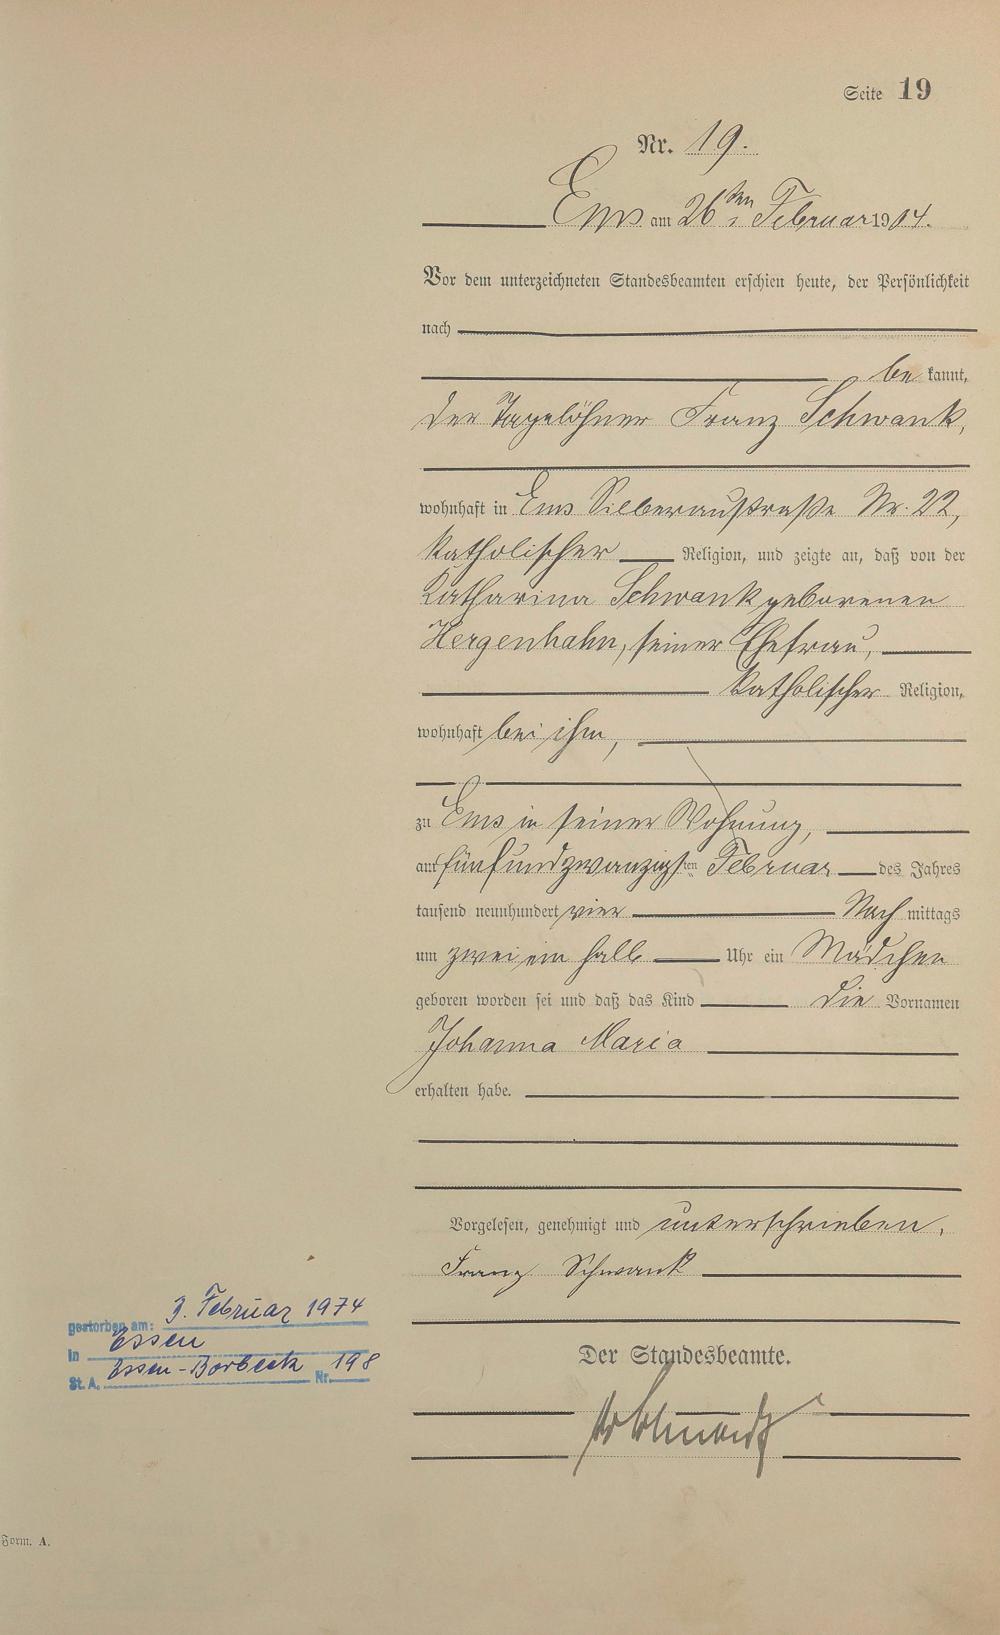 Seite 19
Nr. 19.
Ems am 26ten Februar 1904.
Vor dem unterzeichneten Standesbeamten erschien heute, der Persönlichkeit
nach
be kannt,
der Tagelöhner Franz Schwank,
wohnhaft in Ems Silberaustraße Nr. 22,
katholischer Religion, und zeigte an, daß von der
Katharina Schwank geborenen
Hergenhahn, seiner Ehefrau,
katholischer Religion,
wohnhaft bei ihm,
zu Ems in seiner Wohnung,
am fünfundzwanzigsten Februar des Jahres
tausend neunhundert vier Nach mittags
um zwei ein halb Uhr ein Mädchen
geboren worden sei und daß das Kind die Vornamen
Johanna Maria
erhalten habe.
Vorgelesen, genehmigt und unterschrieben.
Franz Schwank
gestorben am: 3. Februar 1974
in Essen
St. A. Essen-Borbeck Nr. 198
Der Standesbeamte.
Form. A.